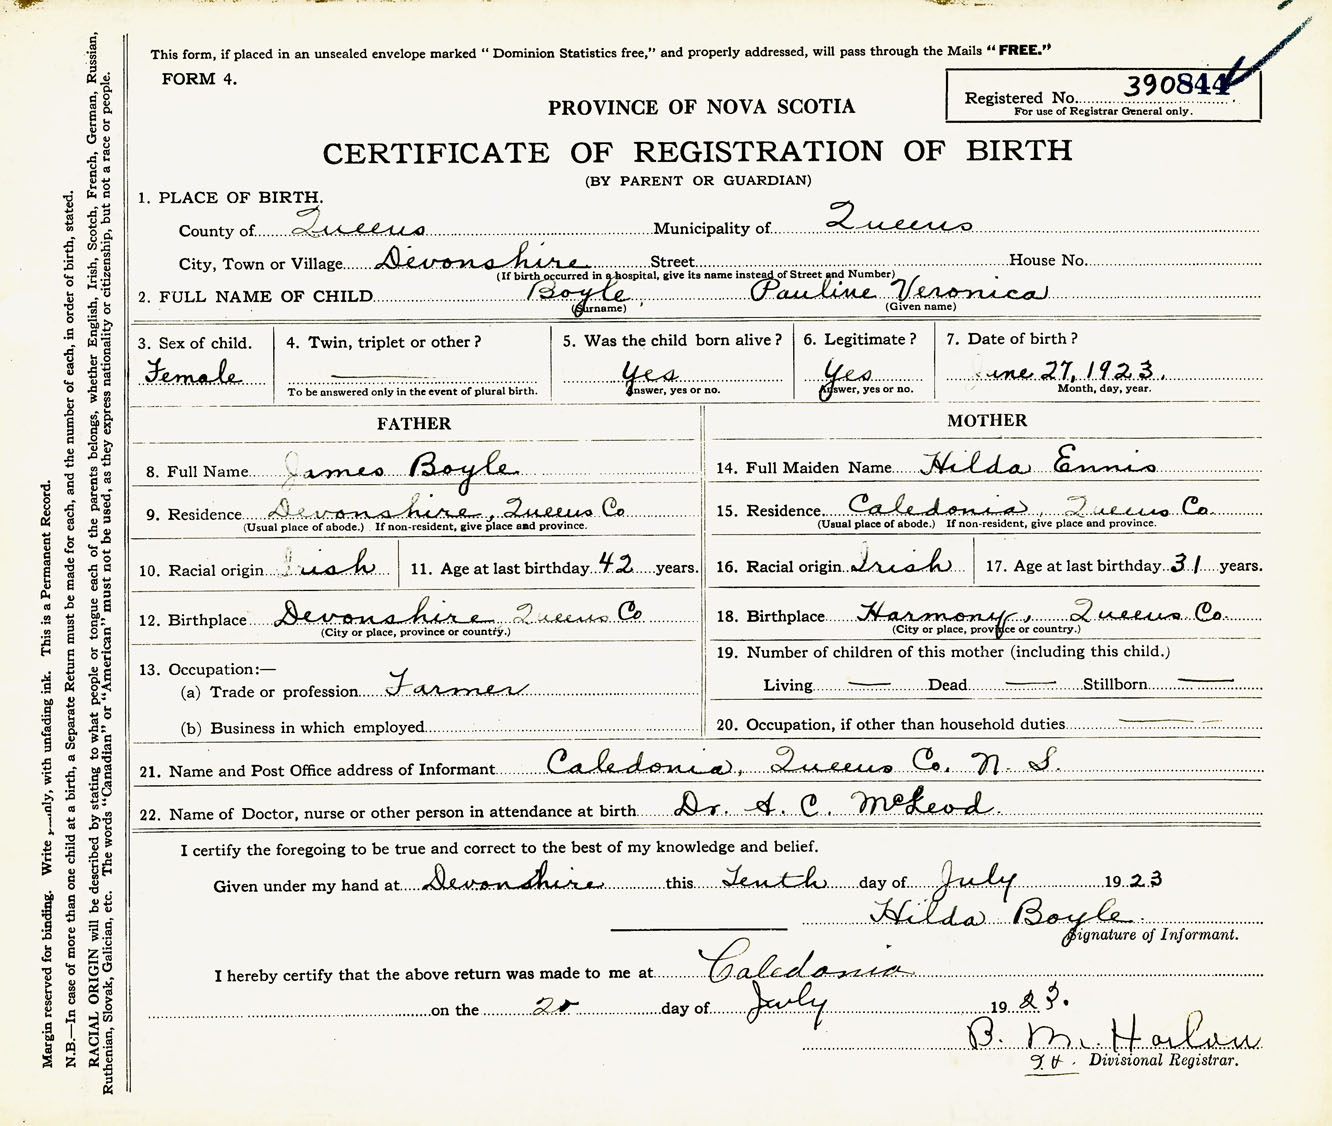 This form, if placed in an unsealed envelope marked "Dominion Statistics free," and properly addressed, will pass through the Mails "FREE."
FORM 4.
Registered No. 390844
For use of Registrar General only.
PROVINCE OF NOVA SCOTIA
CERTIFICATE OF REGISTRATION OF BIRTH
(BY PARENT OR GUARDIAN)
1. PLACE OF BIRTH.
County of Queens Municipality of Queens
City, Town or Village Devonshire Street House No.
(If birth occurred in a hospital, give its name instead of Street and Number)
2. FULL NAME OF CHILD Boyle, Pauline Veronica
(Surname) (Given name)
3. Sex of child. 4. Twin, triplet or other? 5. Was the child born alive? 6. Legitimate? 7. Date of birth?
Female Yes Yes June 27, 1923.
To be answered only in the event of plural birth. Answer, yes or no. Answer, yes or no. Month, day, year.
FATHER
8. Full Name James Boyle
9. Residence Devonshire, Queens Co
(Usual place of abode.) If non-resident, give place and province.
10. Racial origin Irish 11. Age at last birthday 42 years.
12. Birthplace Devonshire Queens Co
(City or place, province or country.)
13. Occupation:—
(a) Trade or profession Farmer
(b) Business in which employed
MOTHER
14. Full Maiden Name Hilda Ennis
15. Residence Caledonia, Queens Co.
(Usual place of abode.) If non-resident, give place and province.
16. Racial origin Irish 17. Age at last birthday 31 years.
18. Birthplace Harmony, Queens Co.
(City or place, province or country.)
19. Number of children of this mother (including this child.)
Living — Dead — Stillborn —
20. Occupation, if other than household duties —
21. Name and Post Office address of Informant Caledonia, Queens Co. N. S.
22. Name of Doctor, nurse or other person in attendance at birth Dr. A. C. McLeod.
I certify the foregoing to be true and correct to the best of my knowledge and belief.
Given under my hand at Devonshire this Tenth day of July 1923
Hilda Boyle.
Signature of Informant.
I hereby certify that the above return was made to me at Caledonia
on the 20 day of July 1923.
B. M. Harlow
Divisional Registrar.
Margin reserved for binding. Write with unfading ink. This is a Permanent Record.
N.B.—In case of more than one child at a birth, a Separate Return must be made for each, and the number of each, in order of birth, stated.
RACIAL ORIGIN will be described by stating to what people or tongue each of the parents belongs, whether English, Irish, Scotch, French, German, Russian,
Ruthenian, Slovak, Galician, etc. The words "Canadian" or "American" must not be used, as they express nationality or citizenship, but not a race or people.